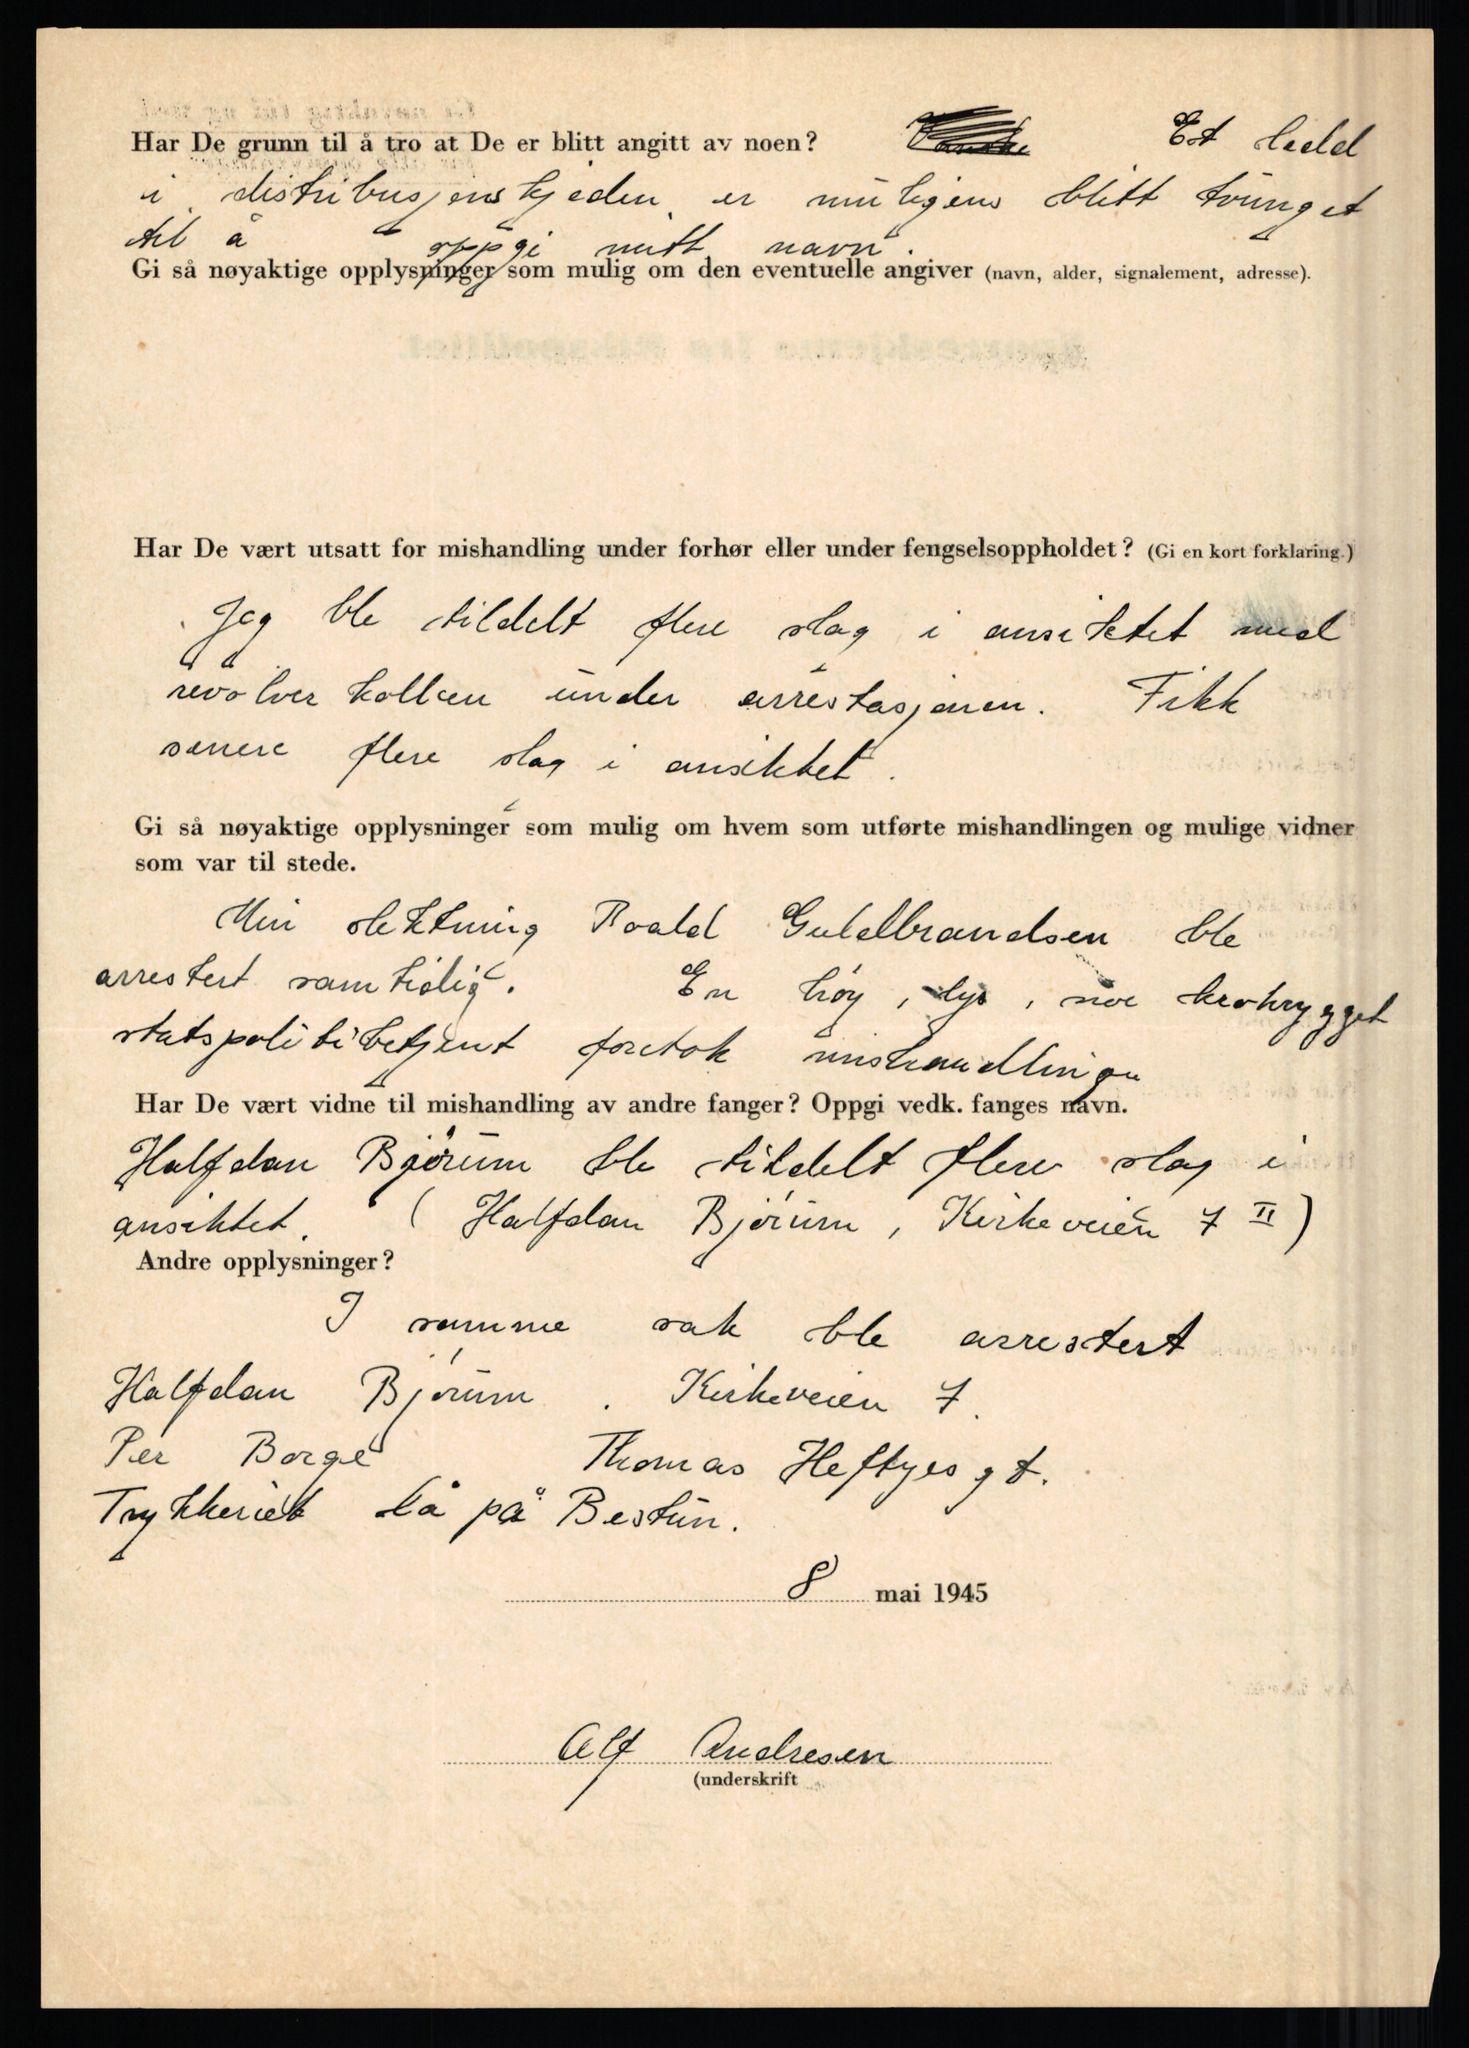 Har De grunn til å tro at De er blitt angitt av noen? Et ledd
i distribusjonskjeden er muligens blitt tvunget
til å oppgi mitt navn.
Gi så nøyaktige opplysninger som mulig om den eventuelle angiver (navn, alder, signalement, adresse).
Har De vært utsatt for mishandling under forhør eller under fengselsoppholdet? (Gi en kort forklaring.)
Jeg ble tildelt flere slag i ansiktet med
revolverkolben under arrestasjonen. Fikk
senere flere slag i ansiktet.
Gi så nøyaktige opplysninger som mulig om hvem som utførte mishandlingen og mulige vidner
som var til stede.
Min slektning Roald Guldbrandsen ble
arrestert samtidig. En høy, lys, noe krokrygget
statspolitibetjent foretok mishandlingen
Har De vært vidne til mishandling av andre fanger? Oppgi vedk. fanges navn.
Halfdan Bjørum ble tildelt flere slag i
ansiktet. (Halfdan Bjørum, Kirkeveien 7 II)
Andre opplysninger?
I samme sak ble arrestert
Halfdan Bjørum. Kirkeveien 7.
Per Borge Thomas Heftyes gt.
Trykkeriet lå på Bestun.
8 mai 1945
Alf Andresen
(underskrift